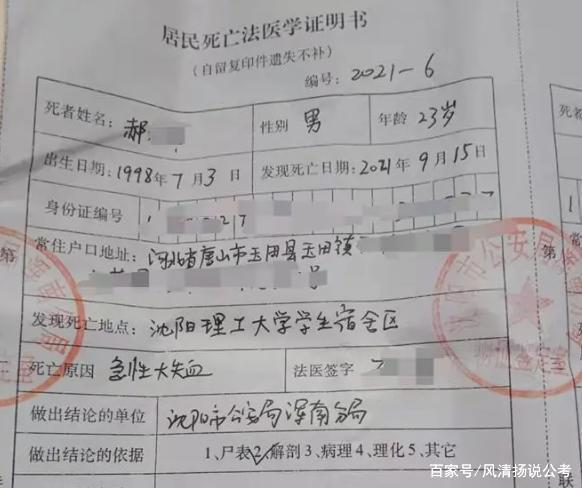 居民死亡法医学证明书
(自留复印件遗失不补)
编号：2021-6
死者姓名：郝 性别 男 年龄 23岁
出生日期：1998年7月3日 发现死亡日期：2021年9月15日
身份证编号
常住户口地址：河北省唐山市玉田县玉田镇
号
发现死亡地点：沈阳理工大学学生宿舍区
死亡原因 急性大失血 法医签字
做出结论的单位 沈阳市公安局浑南分局
做出结论的依据 1、尸表2、解剖3、病理4、理化5、其它
第
联
死者
出生
身
常住
发现
死亡
做出
做出
百家号/风清扬说公考